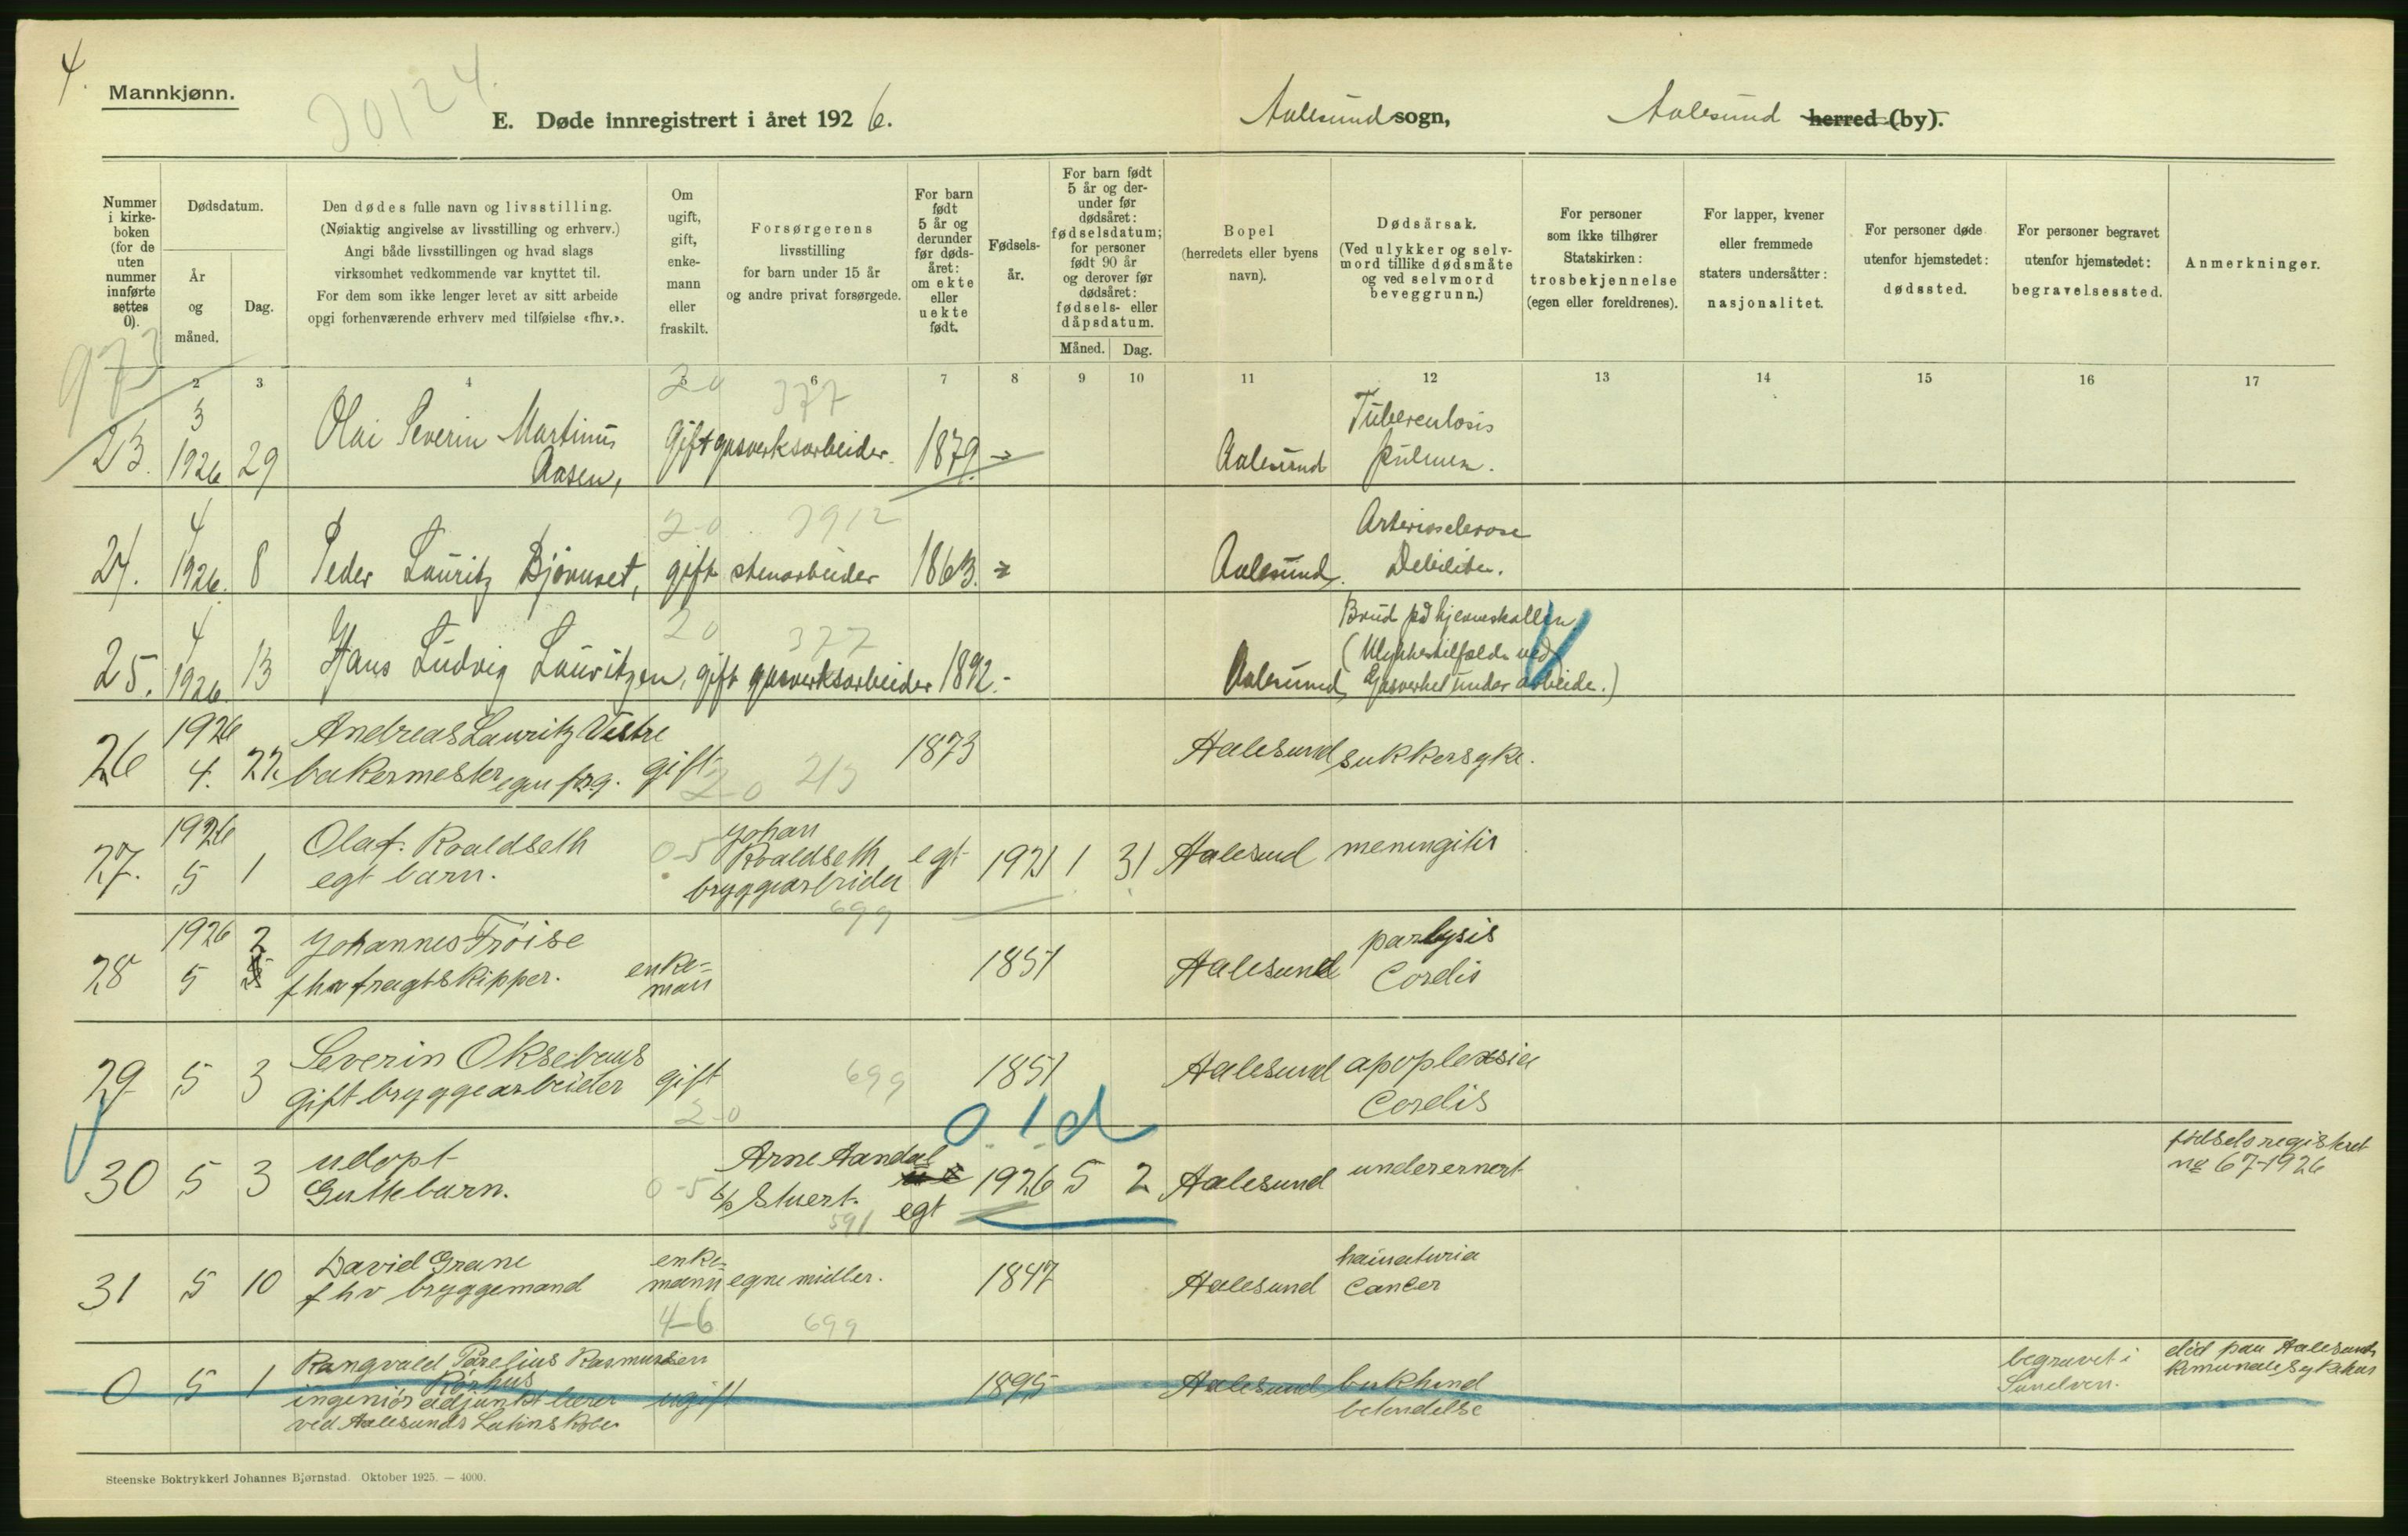 4.
Mannkjønn.
20124.
E. Døde innregistrert i året 1926.
Aalesund sogn,
Aalesund herred (by).
Nummer i kirke-boken (for de uten nummer innførte settes 0).
Dødsdatum.
År og måned.
Dag.
Den dødes fulle navn og livsstilling.
(Nøiaktig angivelse av livsstilling og erhverv.)
Angi både livsstillingen og hvad slags
virksomhet vedkommende var knyttet til.
For dem som ikke lenger levet av sitt arbeide
opgi forhenværende erhverv med tilføielse «fhv.».
Om ugift, gift, enke-mann eller fraskilt.
Forsørgerens
livsstilling
for barn under 15 år
og andre privat forsørgede.
For barn født 5 år og derunder før døds-året: om ekte eller uekte født.
Fødsels-år.
For barn født 5 år og der-under før dødsåret: fødselsdatum; for personer født 90 år og derover før dødsåret: fødsels- eller dåpsdatum.
Måned. Dag.
Bopel
(herredets eller byens
navn).
Dødsårsak.
(Ved ulykker og selv-
mord tillike dødsmåte
og ved selvmord
beveggrunn.)
For personer
som ikke tilhører
Statskirken:
trosbekjennelse
(egen eller foreldrenes).
For lapper, kvener
eller fremmede
staters undersåtter:
nasjonalitet.
For personer døde
utenfor hjemstedet:
dødssted.
For personer begravet
utenfor hjemstedet:
begravelsessted.
Anmerkninger.
973
2 3 4 5 6 7 8 9 10 11 12 13 14 15 16 17
2-0 377
23. 3 1926 29 Olai Severin Martinus Aasen, Gift gasverksarbeider. 1879 Aalesund Tuberculosis pulmon.
2-0 3912
24. 4 1926. 8 Peder Lauritz Bjövnset, gift stenarbeider 1863. Aalesund. Arteriosclerose Debilitas.
20 377
25. 4 1926 13 Hans Ludvig Lauritzen, gift gasverksarbeider 1892.- Aalesund, Brud på hjerneskallen. (Ulykkestilfælde ved Gasverket under arbeide.)
26 1926 4. 22. Andreas Lauritz Vestre bakermester egen forg. gift 1873 Aalesund sukkersyke.
2-0 213
27. 1926 5 1 Olaf Roaldseth egt barn. 0-5 Johan Roaldseth bryggearbeider egt 1921 1 31 Aalesund meningitis
699
28 1926 5 2 Johannes Frøise fhv fragtskipper. enke-man 1851 Aalesund parlysis Cordis
29 5 3 Severin Oksebaus gift bryggearbeider gift 699 1851 Aalesund apoplexsia Cordis
2-0
0. 1. d
30 5 3 udøpt Guttebarn. 0-5 Arne Aandal b/p Stuert. egt 1926 5 2 Aalesund underernert fødselsregistret no 67-1926
591
31 5 10 David Grane fhv bryggemand enke-mann egne midler. 1847 Aalesund haimaturia Cancer
4-6 699
0 5 1 Rangvald Parelius Rasmussen Rørhus ingeniør adjunkt lærer ved Aalesunds Latinskole ugift 1895 Aalesund bukhindbetendelse begravet i Sundven. død paa Aalesunds Komunale Sykehus
Steenske Boktrykkeri Johannes Bjørnstad. Oktober 1925. — 4000.